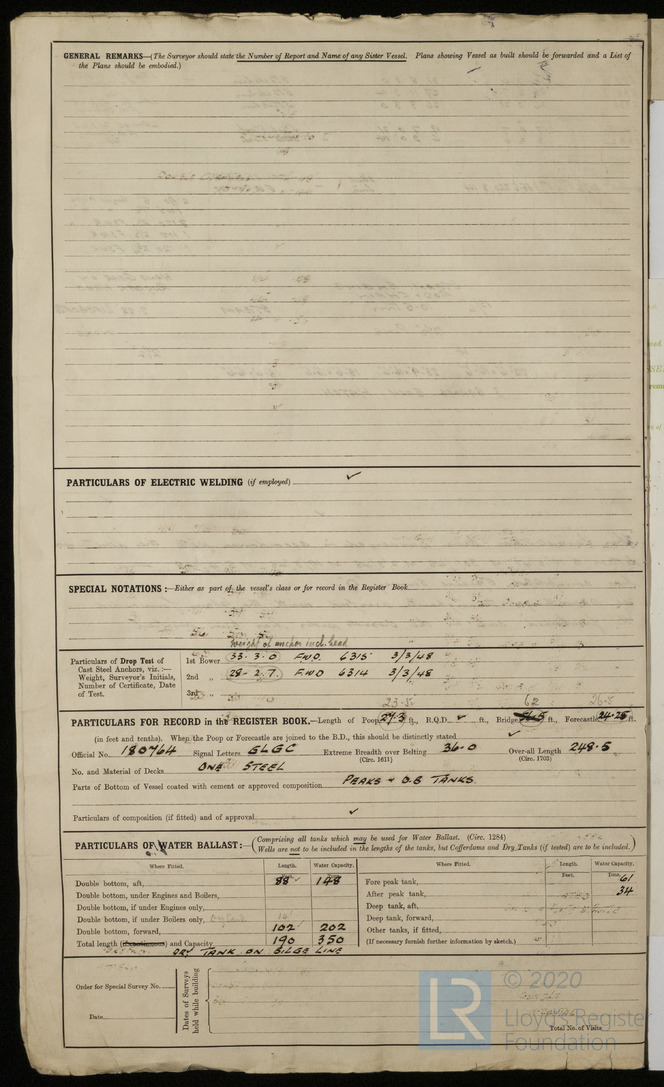 GENERAL REMARKS—(The Surveyor should state the Number of Report and Name of any Sister Vessel. Plans showing Vessel as built should be forwarded and a List of
the Plans should be embodied.)
PARTICULARS OF ELECTRIC WELDING (if employed) ✓
SPECIAL NOTATIONS :—Either as part of the vessel's class or for record in the Register Book
weight of anchor incl. head
Particulars of Drop Test of
Cast Steel Anchors, viz. :—
Weight, Surveyor's Initials,
Number of Certificate, Date
of Test.
1st Bower 33-3.0 F.W.O. 6315 3/3/48
2nd „ 28-2.7. F.W.O 6314 3/3/48
3rd „
23.5 62 26.5
PARTICULARS FOR RECORD in the REGISTER BOOK.—Length of Poop 27.3 ft., R.Q.D. ✓ ft., Bridge 56.5 ft., Forecastle 24.25 ft.
(in feet and tenths). When the Poop or Forecastle are joined to the B.D., this should be distinctly stated ✓
Official No. 180764 Signal Letters GLGC Extreme Breadth over Belting 36.0 Over-all Length 248.5
(Circ. 1611) (Circ. 1703)
No. and Material of Decks ONE STEEL
Parts of Bottom of Vessel coated with cement or approved composition PEAKS & D.B TANKS
Particulars of composition (if fitted) and of approval ✓
PARTICULARS OF WATER BALLAST :—(Comprising all tanks which may be used for Water Ballast. (Circ. 1284)
Wells are not to be included in the lengths of the tanks, but Cofferdams and Dry Tanks (if tested) are to be included.)
Where Fitted. Length. Water Capacity. Where Fitted. Length. Water Capacity.
Feet. Tons.
Double bottom, aft, 88 148
Double bottom, under Engines and Boilers,
Double bottom, if under Engines only,
Double bottom, if under Boilers only,
Double bottom, forward, 102 202
Total length (Continuous) and Capacity 190 350
DRY TANK ON BILGE LINE
Fore peak tank, 61
After peak tank, 34
Deep tank, aft,
Deep tank, forward,
Other tanks, if fitted,
(If necessary furnish further information by sketch.)
Order for Special Survey No.
Date
Dates of Surveys
held while building
Total No. of Visits
LR
© 2020
Lloyd's Register
Foundation